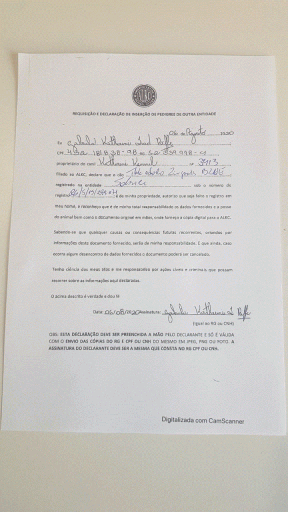 REQUISIÇÃO E DECLARAÇÃO DE INSERÇÃO DE PEDIGREE DE OUTRA ENTIDADE
06 de Agosto
Eu Gabriel Katthuria
proprietário do canil Katthuria Kennel nº 3913
filiado ao ALKC, declaro que o cão
registrado na entidade Sobraci sob o número de
registro é de minha propriedade, autorizo que seja feito o registro em
meu nome, e reconheço que é de minha total responsabilidade os dados fornecidos e a posse
do animal bem como o documento original em mãos, onde forneço a cópia digital para a ALKC.
Sabendo-se que quaisquer causas ou consequências futuras recorrentes, oriundas por
informações deste documento fornecido, serão de minha responsabilidade. E que ainda, caso
ocorra algum desencontro de dados fornecidos o documento poderá ser cancelado.
Tenho ciência dos meus atos e me responsabilizo por ações cíveis e criminais que possam
recorrer sobre as informações aqui declaradas.
O acima descrito é verdade e dou fé
Data: 06/08/20 Assinatura: Gabriel Katthuria
(Igual ao RG ou CNH)
OBS: ESTA DECLARAÇÃO DEVE SER PREENCHIDA A MÃO PELO DECLARANTE E SÓ É VÁLIDA
COM O ENVIO DAS CÓPIAS DO RG E CPF OU CNH DO MESMO EM JPEG, PNG OU FOTO. A
ASSINATURA DO DECLARANTE DEVE SER A MESMA QUE CONSTA NO RG E CPF OU CNH.
Digitalizada com CamScanner